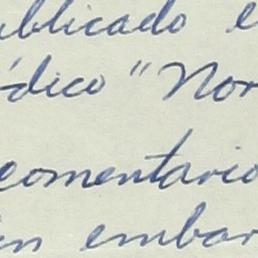 ublicado e
ódico "Nor
comentario
in embar